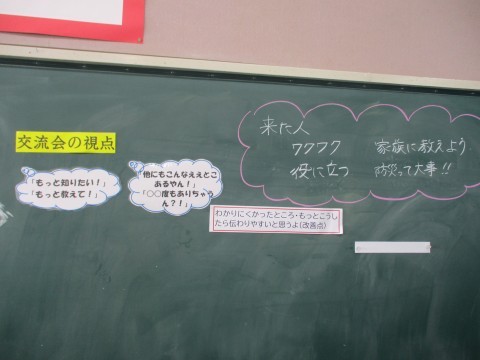 交流会の視点
「もっと知りたい!」
「もっと教えて!」
「他にもこんなええとこ
あるやん!」
「○○度もありちゃう
ん?!」
わかりにくかったところ・もっとこうし
たら伝わりやすいと思うよ(改善点)
来た人
ワクワク
役に立つ
家族に教えよう
防災って大事!!